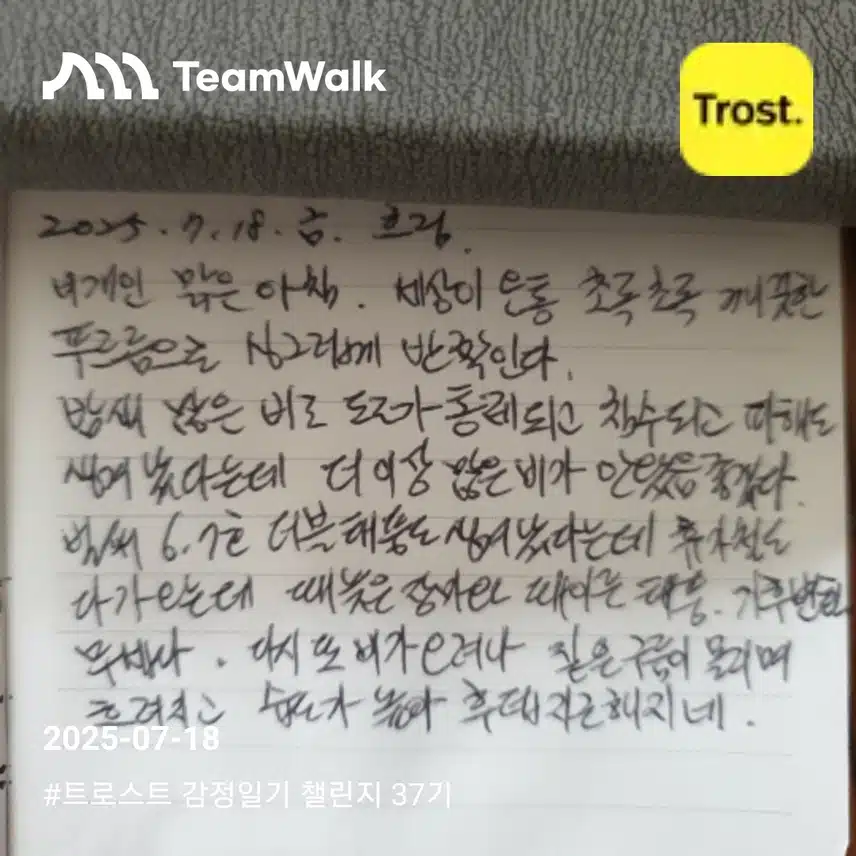 TeamWalk
Trost.
2025.7.18.금. 흐림.
비개인 맑은 아침. 세상이 온통 초록초록 깨끗한
푸르름으로 싱그럽게 반짝인다.
밤새 많은 비로 도로가 통제되고 침수되고 피해도
생겨났다는데 더 이상 많은 비가 안왔음 좋겠다.
벌써 6.7호 더블태풍도 생겨났다는데 휴가철도
다가오는데 때늦은 장마와 때이른 태풍. 기후변화
무섭다. 다시 또 비가 오려나 짙은 구름이 몰리며
흐려지고 습도가 높아 후텁지근해지네.
2025-07-18
#트로스트 감정일기 챌린지 37기